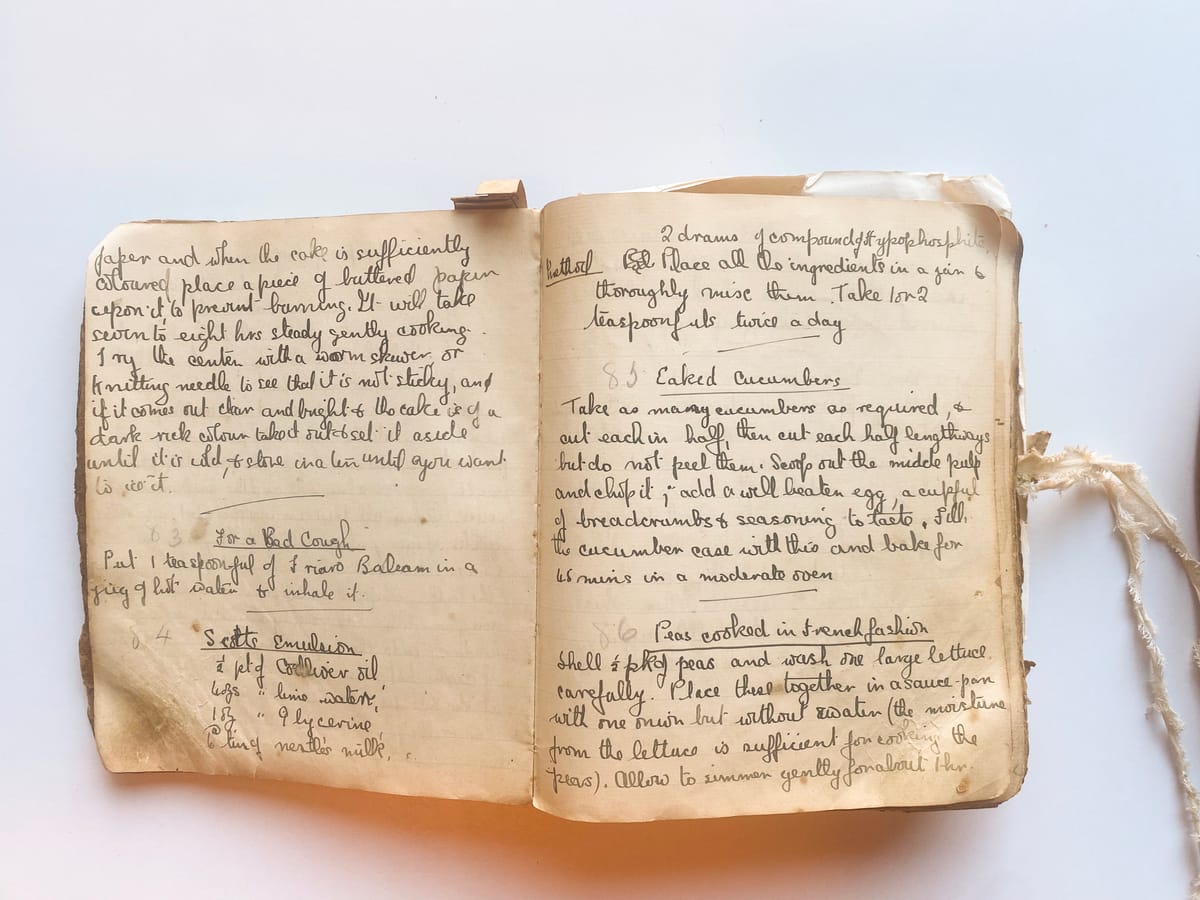 paper and when the cake is sufficiently
coloured place a piece of buttered paper
upon it, to prevent burning. It will take
seven to eight hrs steady gently cooking.
Try the center with a warm skewer, or
Knitting needle to see that it is not sticky, and
if it comes out clear and bright & the cake is of a
dark rich colour take it out & set it aside
until it is cold, & store in a tin until you want
to
83 For a Bad Cough
Put 1 teaspoonful of Friars Balsam in a
jug of hot water & inhale it.
84 Scotts Emulsion
½ pt of Codliver oil
4 ozs " lime water,
1 oz " Glycerine
tin of nestle's milk,
2 drams of compound of Hypophosphite
Method Place all the ingredients in a jar &
thoroughly mix them. Take 1 or 2
teaspoonfuls twice a day
85 Baked Cucumbers
Take as many cucumbers as required, &
cut each in half, then cut each half lengthways
but do not peel them. Scoop out the middle pulp
and chop it; add a well beaten egg, a cupful
of breadcrumbs & seasoning to taste. Fill
the cucumber case with this and bake for
45 mins in a moderate oven
86 Peas cooked in French fashion
Shell ½ pk of peas and wash one large lettuce
carefully. Place these together in a sauce-pan
with one onion but without water (the moisture
from the lettuce is sufficient for cooking the
peas). Allow to simmer gently for about 1 hr.